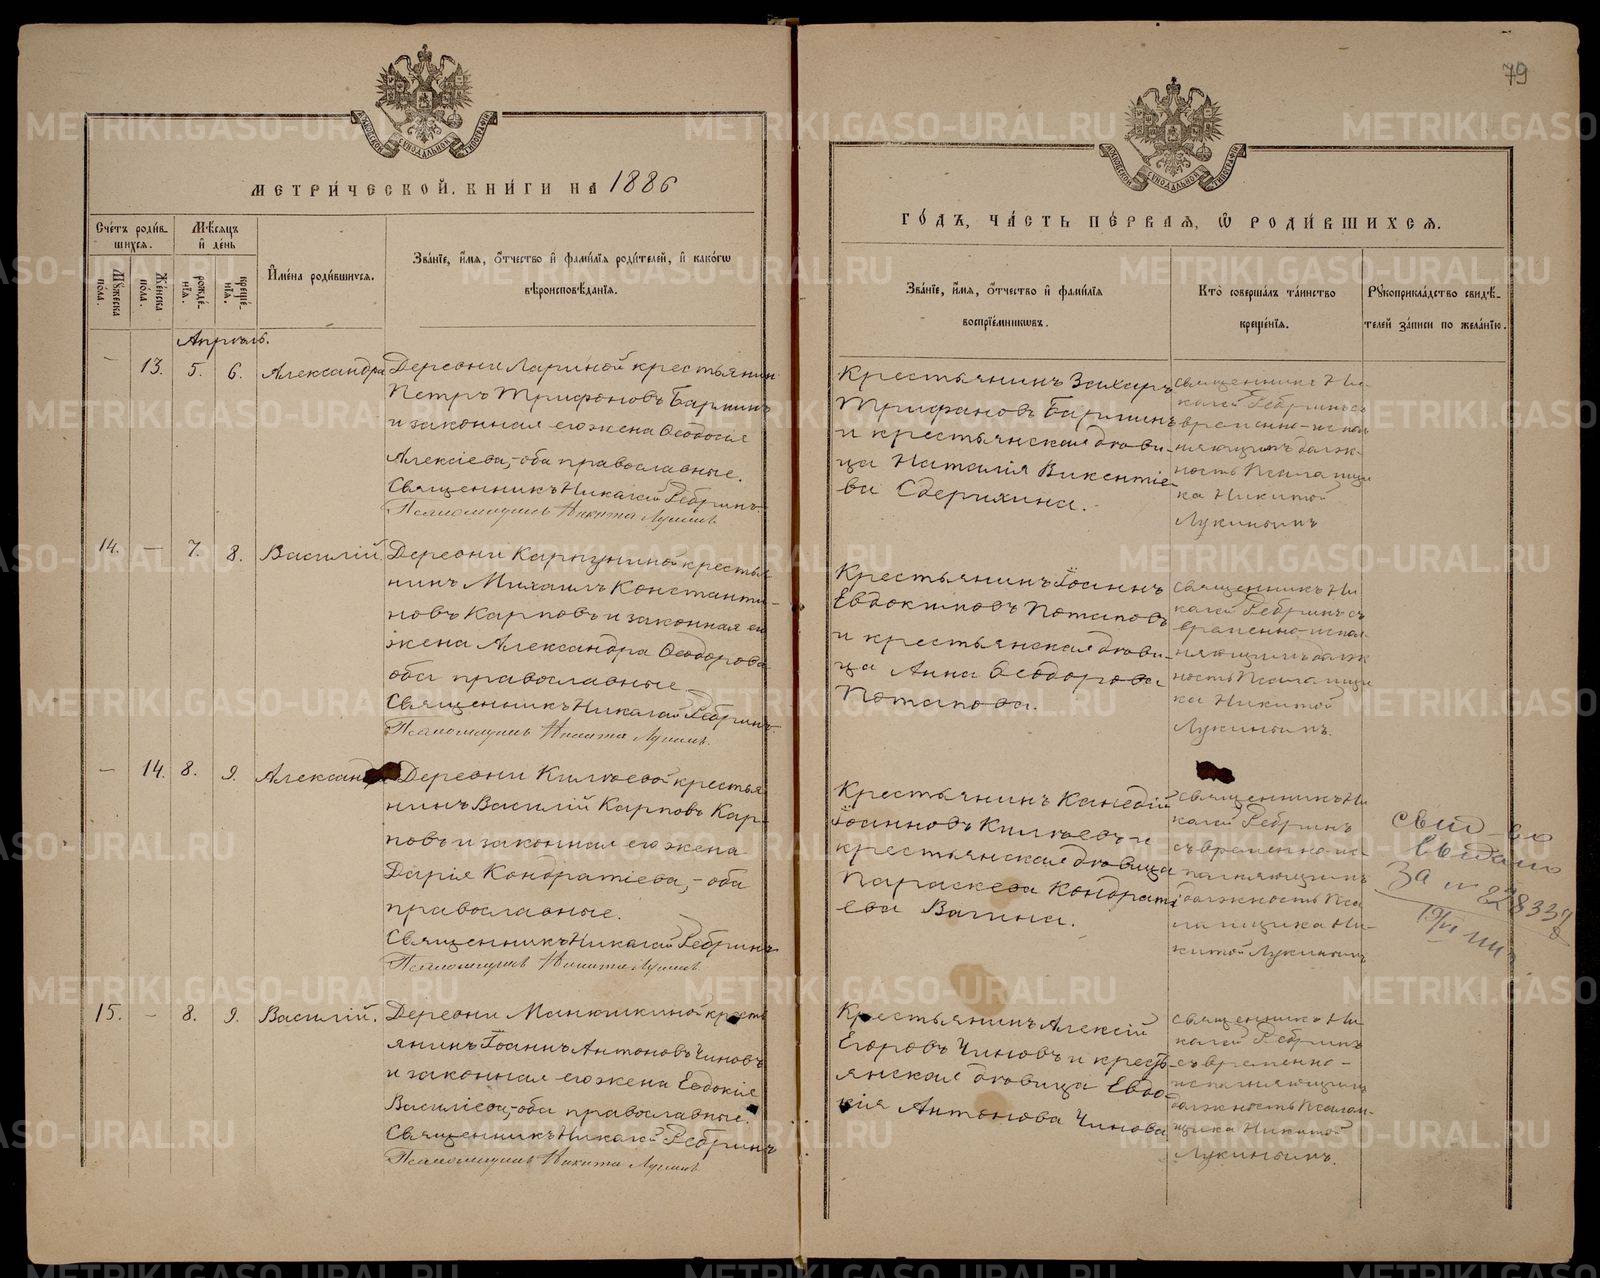 79
МЕТРИ́ЧЕСКОЙ КНИ́ГИ НА 1886
ГО́ДЪ, ЧА́СТЬ ПЕ́РВАЯ, Ѡ РОДИ́ВШИХСѦ.
Сче́тъ роди́вшихсѧ.
Мꙋ́жеска по́ла.
Же́нска по́ла.
Мѣ́сѧцъ и де́нь
рожде́нїѧ.
креще́нїѧ.
И҆мена̀ роди́вшихсѧ.
Зва́нїе, и҆́мѧ, ѻ҆́тчество и҆ фами́лїѧ роди́телей, и҆ како́гѡ
вѣроисповѣ́данїѧ.
Зва́нїе, и҆́мѧ, ѻ҆́тчество и҆ фами́лїѧ
воспрїе́мникѡвъ.
Кто̀ соверша́лъ та́инство
креще́нїѧ.
Рꙋкоприкла́дство свидѣ́-
телей за́писи по жела́нїю.
Апрѣль.
— 13. 5. 6. Александра
Деревни Лариной крестьянин
Петръ Трифоновъ Барминъ
и законная его жена Ѳеодосія
Алексіева,- оба православные.
Священникъ Николай Ребринъ
Псаломщикъ Никита Лукинъ
Крестьянинъ Захаръ
Трифановъ Барминъ
и крестьянская дѣви-
ца Наталія Викентіе-
ва Сдерихина.
Священникъ Ни-
колай Ребринъ съ
временно-испол
няющимъ долж-
ность Псаломщи
ка Никитой
Лукинымъ
14. — 7. 8. Василій.
Деревни Карпуниной крестья
нинъ Михаилъ Константи-
новъ Карповъ и законная его
жена Александра Ѳеодорова
оба православные
Священникъ Николай Ребринъ
Псаломщикъ Никита Лукинъ.
Крестьянинъ Іоаннъ
Евдокимовъ Потаповъ
и крестьянская дѣви-
ца Анна Ѳеодорова
Потапова.
Священникъ Ни
колай Ребринъ съ
временно-испол-
няющимъ долж
ность Псаломщи
ка Никитой
Лукинымъ.
— 14. 8. 9. Александра
Деревни Килѣевой крестья
нинъ Василій Карповъ Кар-
повъ и законная его жена
Дарія Кондратіева,- оба
православные.
Священникъ Николай Ребринъ
Псаломщикъ Никита Лукинъ
Крестьянинъ
Іоанновъ Килѣевъ и
крестьянская дѣвица
Параскева Кондрать
ева Вагина.
Священникъ Ни
колай Ребринъ
съ временно ис-
полняющимъ
должность Пса
ломщика Ни-
китой Лукинымъ
свид-во
выдано
за №
15. — 8. 9. Василій.
Деревни Манюшкиной кресть
янинъ Іоаннъ Антоновъ Чиновъ
и законная его жена Евдокія
Василіева,- оба православные.
Священникъ Николай Ребринъ
Псаломщикъ Никита Лукинъ
Крестьянинъ Алексій
Егоровъ Чиновъ и кресть-
янская дѣвица Евдо-
кія Антонова Чинова
Священникъ Ни
колай Ребринъ
съ временно-
исполняющимъ
должность Псалом-
щика Никитой
Лукинымъ.
METRIKI.GASO-URAL.RU